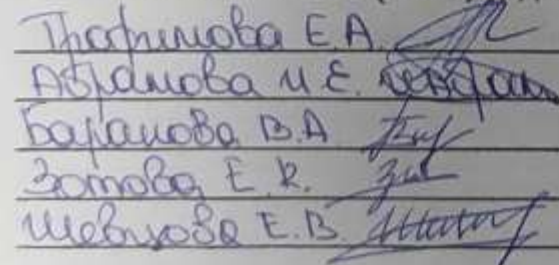 Трафимова Е.А.
Абрамова И.Е.
Баранова В.А
Зотова Е.К.
Шевцова Е.В.